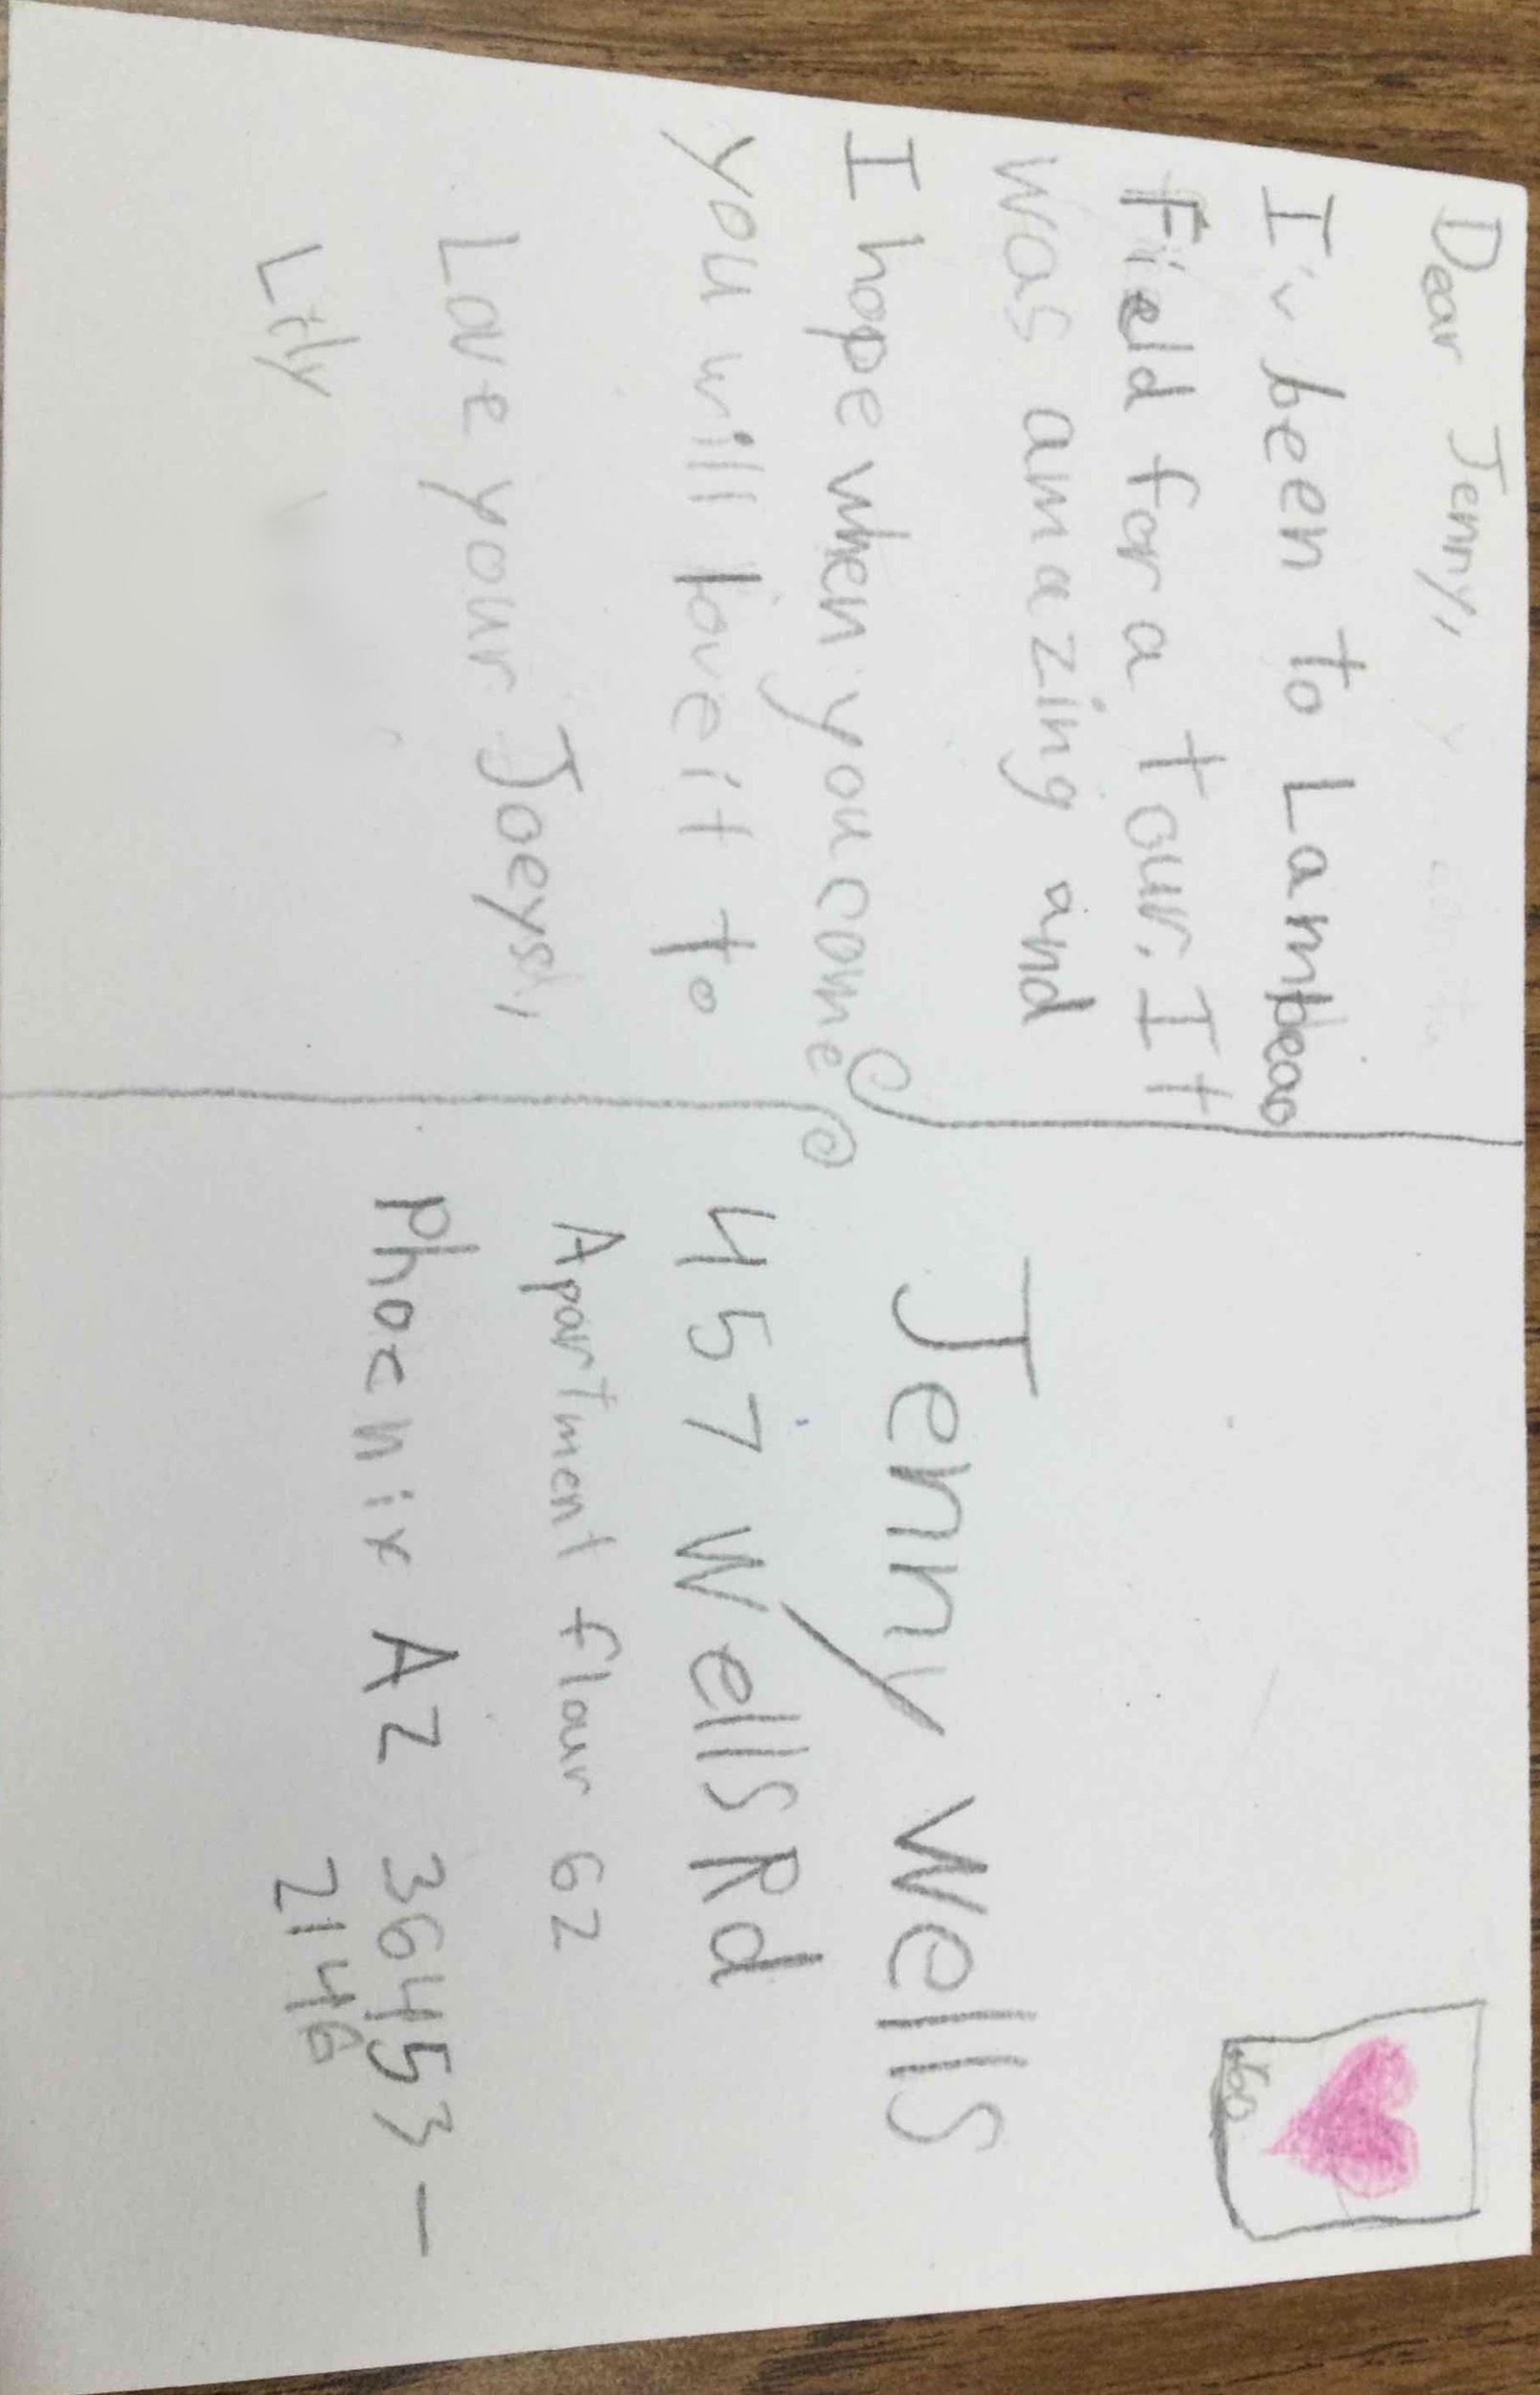 Dear Jenny,
I'v been to Lambeao
Field for a tour. It
was amazing and
I hope when you come
you will love it to
Love your Joeyst,
Lily
Jenny Wells
457 Wells Rd
Apartment flour 62
Phoenix AZ 36453-
2146